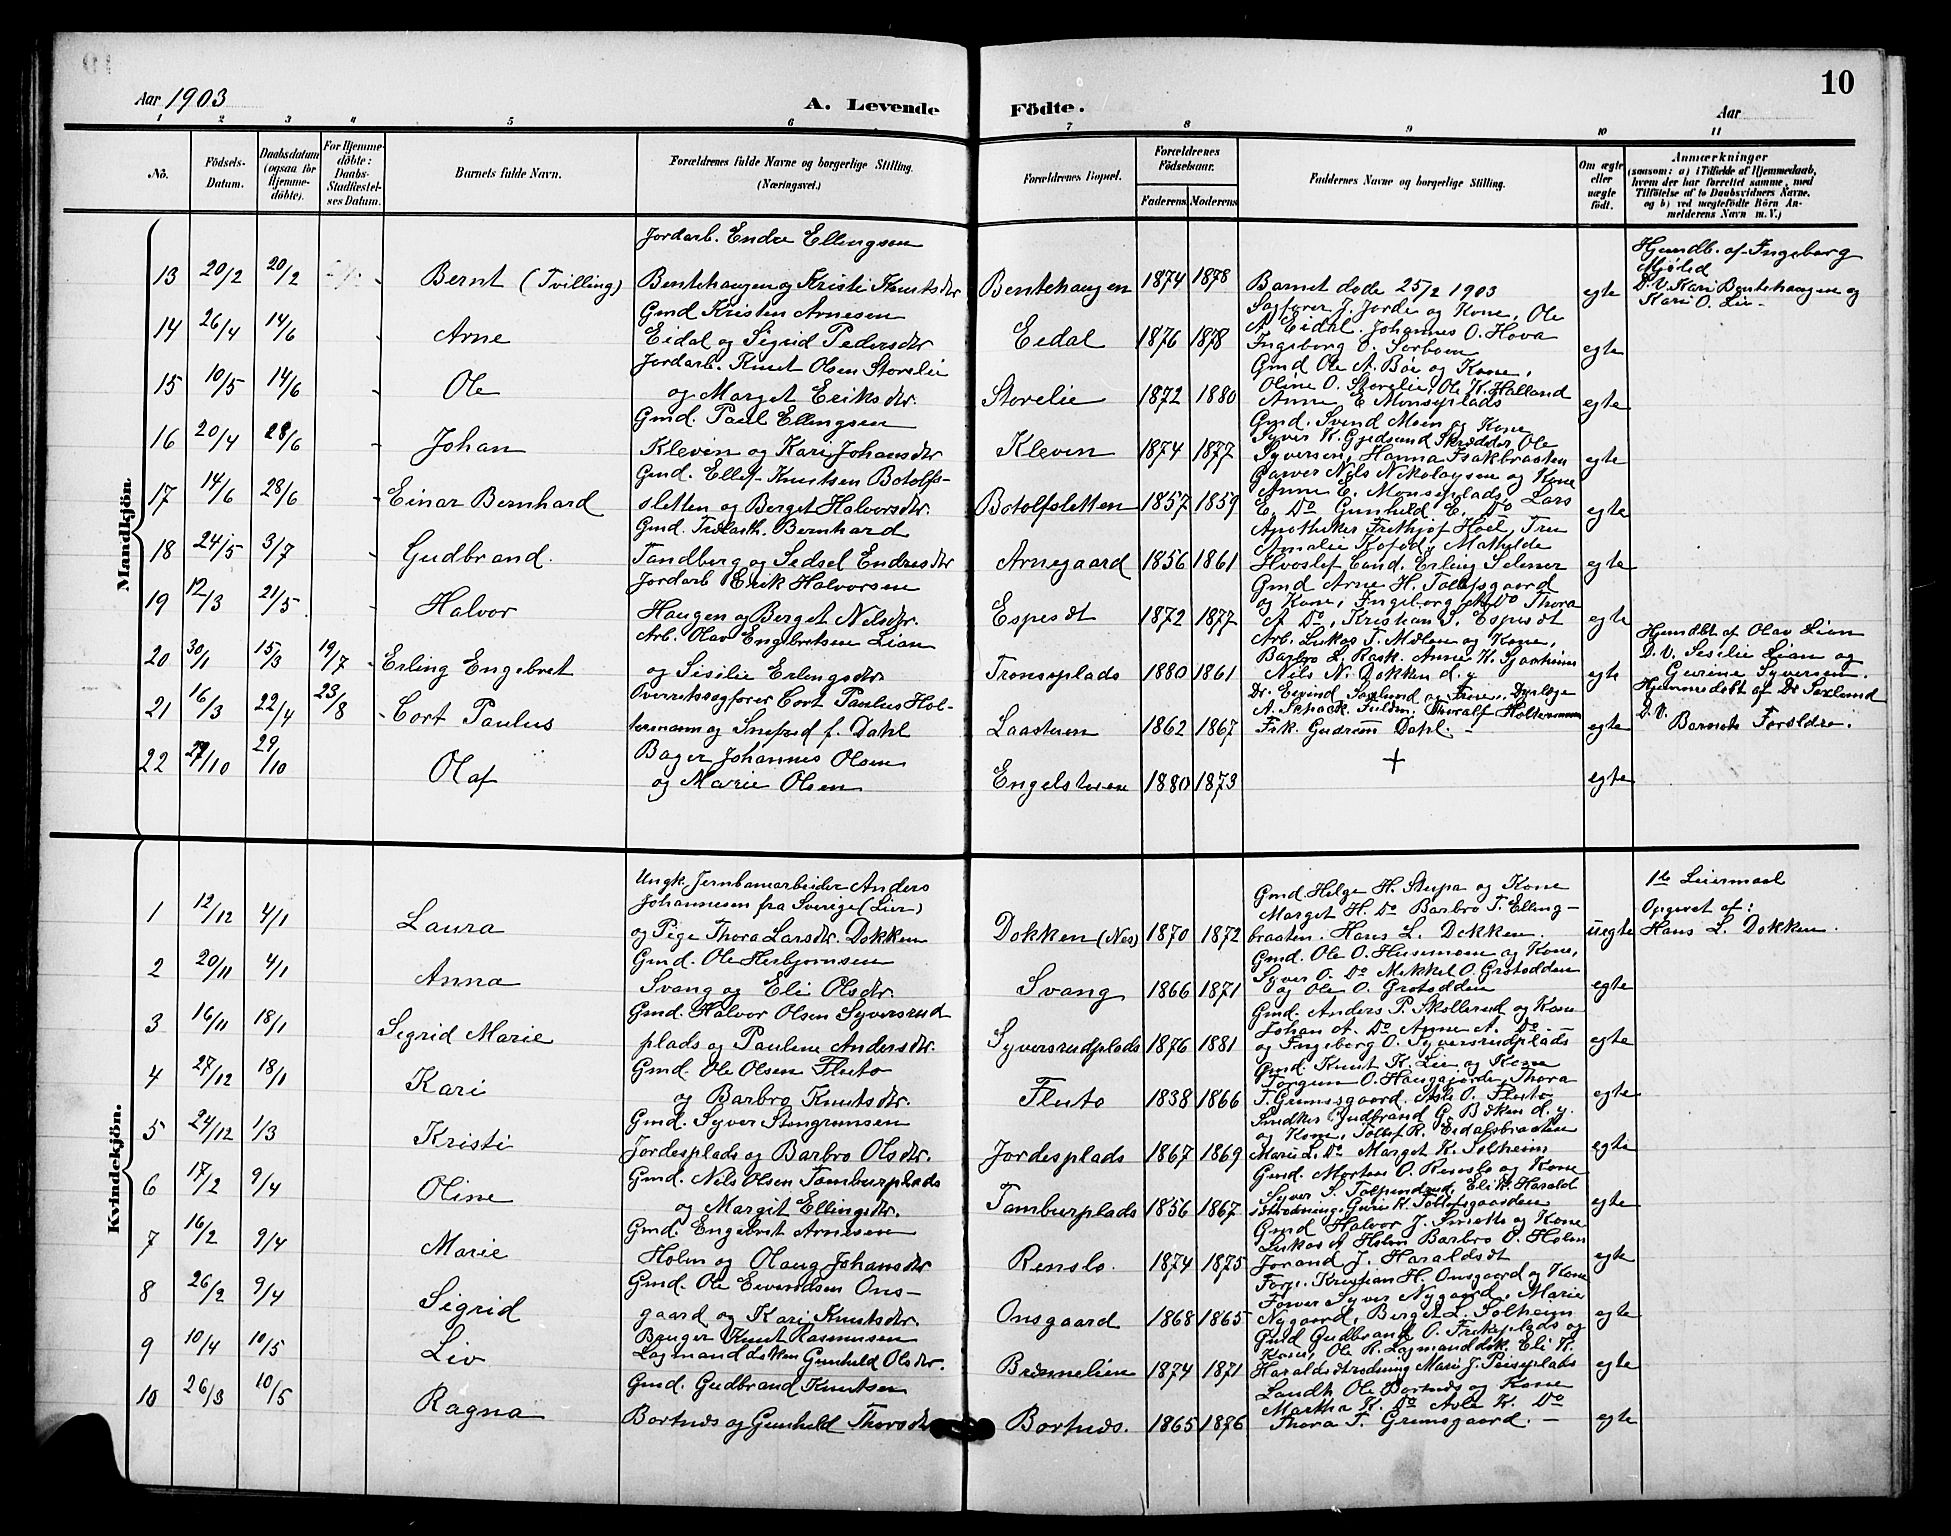 Aar 1903
A. Levende Födte.
Aar
10
1 2 3 4 5 6 7 8 9 10 11
No.
Födsels-Datum.
Daabsdatum (ogsaa for Hjemme-döbte).
For Hjemme-döbte: Daabs-Stadfæstel-ses Datum.
Barnets fulde Navn.
Forældrenes fulde Navne og borgerlige Stilling. (Næringsvei.)
Forældrenes Bopæl.
Forældrenes Födselsaar.
Faderens Moderens
Faddernes Navne og borgerlige Stilling.
Om ægte eller uægte födt.
Anmærkninger
(saasom: a) i Tilfælde af Hjemmedaab,
hvem der har forrettet samme, med
Tilföielse af to Daabsvidners Navne,
og b) ved uægtefödte Börn An-
melderens Navn m. V.)
Mandkjön
13 20/2 20/2 Bernt (Tvilling)
Jordarb. Endre Ellingsen
Bentehaugen og Kristi Knutsdtr
Bentehaugen 1874 1878
Barnet døde 25/2 1903
egte
Hjemdb. af Ingeborg
Mjølid
D.V. Kari Bentehaugen og
Kari O. Lie
14 26/4 14/6 Arne
Gmd Kristen Arnesen
Eidal og Sigrid Pedersdtr
Eidal 1876 1878
Sagfører J. Jorde og Kone, Ole
A. Eidal. Johannes O. Hova
Ingeborg O. Sørboen
egte
15 10/5 14/6 Ole
Jordarb. Knut Olsen Storelie
og Marget Eriksdtr.
Storelie 1872 1880
Gmd Ole A. Bøe og Kone,
Oline O. Storelie, Ole K. Halland
Anne E. Monsplads
egte
16 20/4 28/6 Johan
Gmd. Paul Ellingsen
Kleven og Kari Johansdtr
Kleven 1874 1877
Gmd. Svend Moen og Kone
Syver K. Gjedsund Skrædder, Ole
Syversen, Hanna Isakbraaten
egte
17 14/6 28/6 Einar Bernhard
Gmd. Ellef Knutsen Botolfs-
sletten og Berget Halvorsdtr
Botolfsletten 1857 1859
Garver Nils Nikolaysen og Kone
Anne E. Monsplads, Lars
E. Do Gunhild E. Do
egte
18 24/5 3/7 Gudbrand.
Gmd. Trælasth. Bernhard
Tandberg og Sedsel Endresdtr
Arnegaard 1856 1861
Apotheker Frithjof Hoel, Fru
Amalie Kofod, Mathilde
Hvoslef Cand. Erling Selmer
egte
19 12/3 21/5 Halvor
Jordarb Erik Halvorsen
Haugen og Berget Nilsdtr.
Espesdt 1872 1877
Gmd Arne H. Tollefsgaard
og Kone, Ingeborg A. Do Thora
A Do, Kristian S. Espesdt
egte
20 30/1 15/3 19/7 Erling Engebret
Arb. Olav Engebretsen Lian
og Sisilie Erlingsdtr.
Tronsplads 1880 1861
Arb. Lukas T. Mælen og Kone,
Barbro L. Rask. Anne H.
Nils N. Dokken d.y
egte
Hjemdbt af Olav Lian
D.V. Sesilie Lian og
Gurine Syversen.
21 16/3 22/4 23/8 Cort Paulus
Overretssagfører Cort Paulus Hol-
termann og Snefred f. Dahl
Laasteren 1862 1867
Dr. Eivind Saxlund og Frue, Dyrlæge
A. Schack Fulden. Thoralf Holtermann
Frk. Gudrun Dahl.
egte
Hjemmedøbt af Dr Saxlund
D.V.
Barnets Forældre.
22 29/10 Olaf
Bager Johannes Olsen
og Marie Olsen
1880 1873
+
egte
Kvindekjön.
1 12/12 4/1 Laura
Ungk. Jernbanearbeider Anders
Johannesen fra Sverige (Lier)
og Pige Thora Larsdtr. Dokken
Dokken (Nes) 1870 1872
Gmd Helge H. Stupa og Kone
Marget H. Do Barbro T. Elling-
braaten. Hans L. Dokken.
uegte
1ste Leiermaal
Opgivet af:
Hans L. Dokken.
2 20/11 4/1 Anna
Gmd. Ole Herbjørnsen
Svang og Eli Olsdtr.
Svang 1866 1871
Gmd. Ole O. Husemoen og Kone,
Syver O. Do Mikkel O. Grotodden
og Ole O. Grotodden
egte
3 16/11 18/1 Sigrid Marie
Gmd. Halvor Olsen Syversrud
plads og Pauline Andersdtr.
Syversrudplads 1876 1881
Gmd. Anders P. Skollerud og Kone
Johan A. Do Anne A. Do
og Ingeborg O. Syversrudplads
egte
4 27/12 18/1 Kari
Gmd. Ole Olsen Fluto
og Barbro Knutsdtr.
Fluto 1838 1866
Gmd. Knut K. Lie og Kone
Torgun O. Haugajorde, Thora
T. Grimsgaard. Asle O. Fluto
egte
5 24/12 1/3 Kristi
Gmd. Syver Stengrimsen
Jordesplads og Barbro Olsdtr.
Jordesplads 1867 1869
Snedker Gudbrand G. Bakken d. y.
og Kone, Tollef R. Eidalsbraaten
Marie L. Do Marget K. Solheim
egte
6 17/2 9/4 Oline
Gmd. Nils Olsen Tamburplads
og Margit Ellingsdtr.
Tamburplads 1856 1867
Gmd. Morten O. Renslo og Kone
Syver S. Tolpinrud, Eli K. Harald
sdtrødning, Guri K. Tollefsgaarden
egte
7 16/2 9/4 Marie
Gmd. Engebret Arnesen
Holm og Olaug Johansdtr
Renslo. 1874 1875
Gmd Halvor J. Smetts og Kone
Lukas A Holm Barbro O. Holm
Jorand J. Haraldsdt
egte
8 26/2 9/4 Sigrid
Gmd. Ole Eivendsen Ons-
gaard og Kari Knutsdtr.
Onsgaard 1868 1865
Forp. Kristian H. Onsgaard og Kone
Farver Syver Nygaard, Marie
Nygaard, Berget L. Solheim
egte
9 10/4 10/5 Liv
Bruger Knut Rasmusen
Lagmanddokken Gunhild Olsdtr.
Brennelien 1874 1871
Gmd Gudbrand O. Trikeplads og
Kone, Ole R. Lagmanddok. Eli K.
Haraldsdtrødning Mari J. Prisplads
egte
10 26/3 10/5 Ragna
Gmd. Gudbrand Knutsen
Bortnæs og Gunhild Thorsdtr
Bortnæs. 1865 1876
Landh. Ole Bortnæs og Kone
Martha K. Do Asle K. Do
Thora T. Grimsgaard.
egte